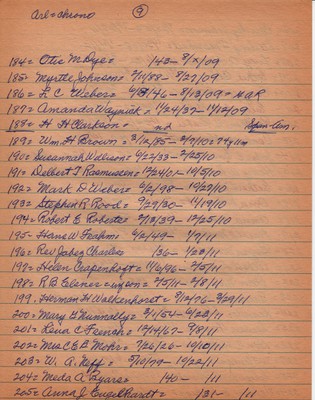 Arl = chrono
9
184 = Otis M Dye = 143 - 8/12/09
185 = Myrtle Johnson = 2/11/88 - 8/27/09
186 = L C Weber = /46 - 8/13/09 = MAR
187 = Amanda Waynick = 11/24/37 - 11/12/09
188 = H H Clarkson = nd Span-Am.
189 = Wm H Brown = 3/12/85 - 2/9/10 = 74y11m
190 = Susannah Wilson = 6/22/33 - 2/25/10
191 = Delbert T Rasmussen = 12/24/01 - 10/5/10
192 = Mark D Weber = 6/2/98 - 10/22/10
193 = Stephen R Rood = 2/29/30 - 11/19/10
194 = Robert E Roberts = 2/3/39 - 12/25/10
195 - Hans W Frahm = 6/2/49 - 1/9/11
196 = Rev Jabez Charles 136 - 1/20/11
197 = Helen = 11/6/96 - 2/5/11
198 = R B = 2/5/11 - 2/8/11
199. Herman H Walkenhorst = 7/12/76 - 3/29/11
200 = Mary G Nunnally = 3/1/54 - 9/23/11
201 = Rena C French = 1/14/67 - 9/8/11
202 = Mrs C E B Mohr = 7/26/26 - 10/10/11
203 = W. A. Neff = 5/10/79 - 10/22/11
204 = Meda A Syars = 140 - 111
205 = Anna J Engelhardt = 131 - 111